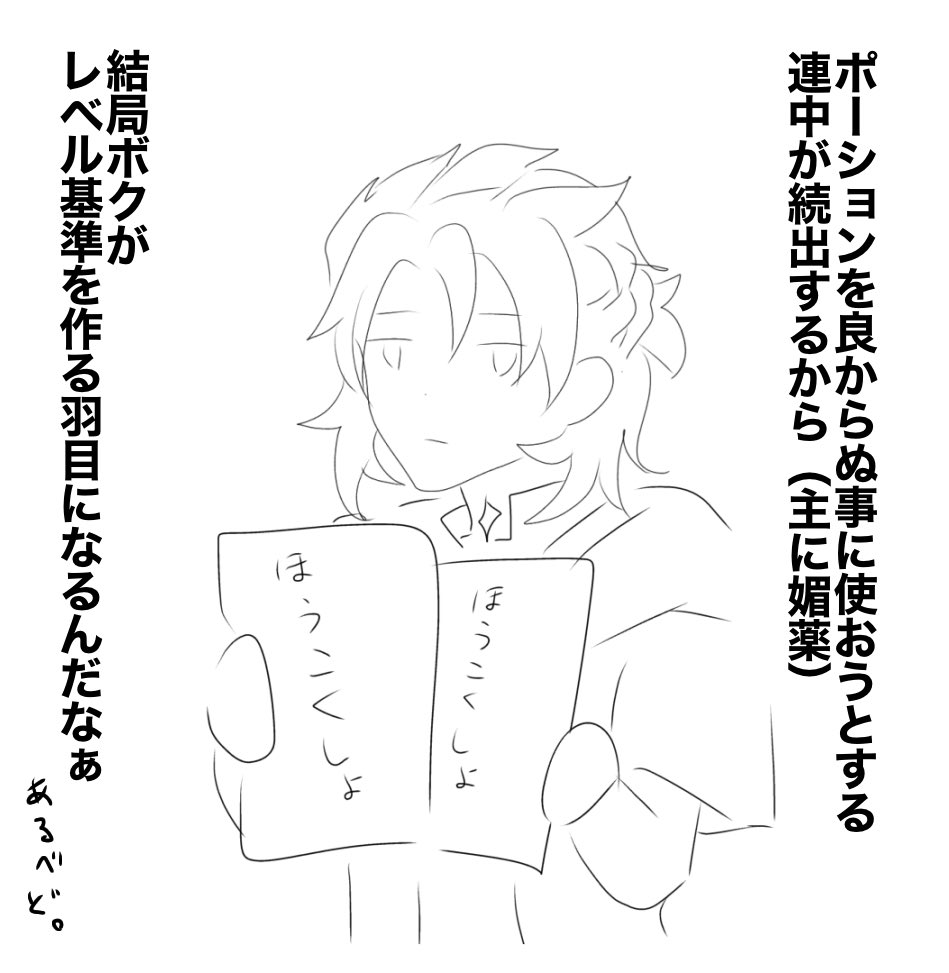 ポーションを良からぬ事に使おうとする
連中が続出するから（主に媚薬）
ほうこくしょ
ほうこくしょ
結局ボクが
レベル基準を作る羽目になるんだなぁ
あるべど。